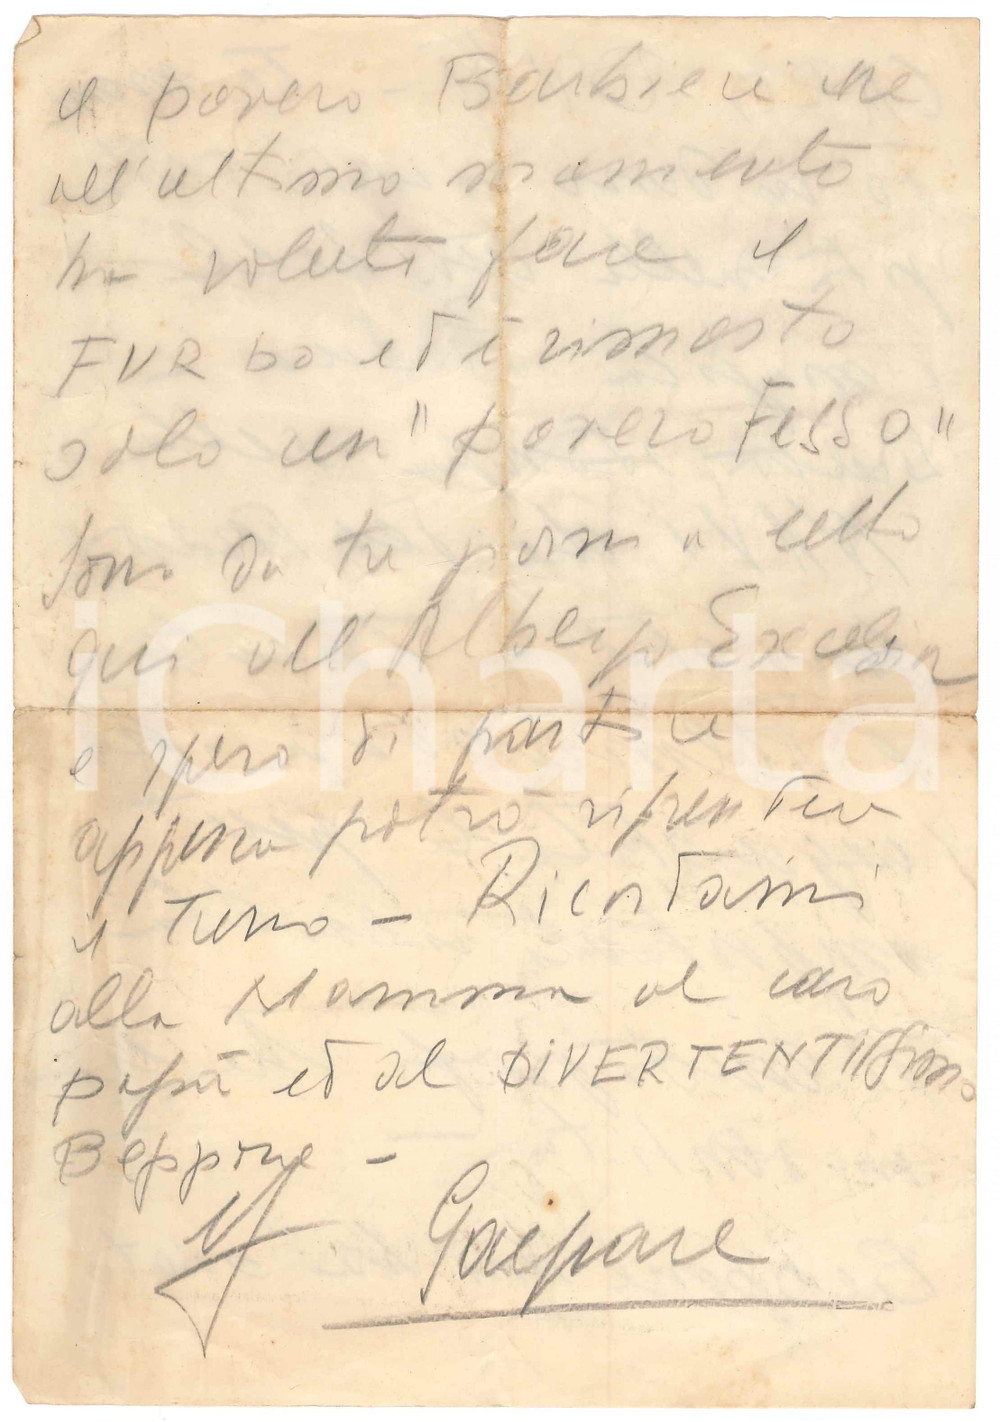 il povero Barbieri che
all'ultimo momento
ha voluto fare il
FURbo ed è rimasto
solo un "povero FESSO"
Sono da tre giorni a letto
qui all'Albergo Excelsior
e spero di partire
appena potrò riprender
il treno - Ricordami
alla Mamma al caro
papà ed al DIVERTENTISSimo
Beppone -
Gaspare
iCharta